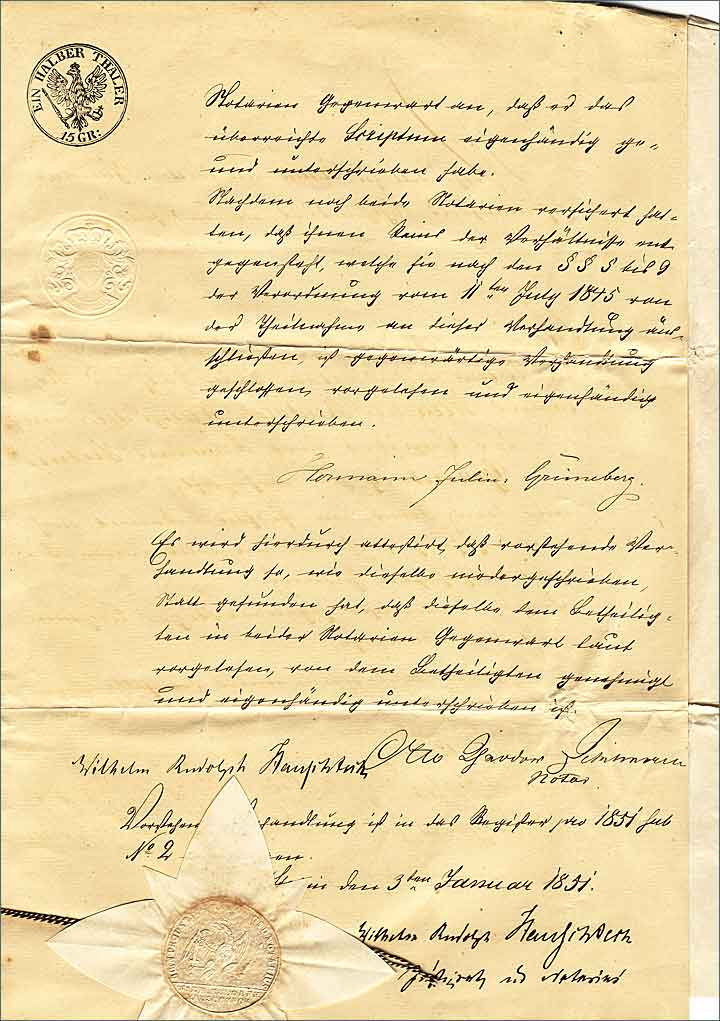 EIN HALBER THALER
15 GR:
Notarien Gegenwart an, daß er das
überreichte Scriptum eigenhändig ge-
und unterschrieben habe.
Nachdem noch beide Notarien versichert hat-
ten, daß ihnen keins der Verhältnisse ent
gegensteht, welche sie nach den § § 5 bis 9
der Verordnung vom 11ten July 1845 von
der Theilnahme an dieser Verhandlung aus-
schließen, ist gegenwärtige Verhandlung
geschlossen, vorgelesen und eigenhändig
unterschrieben.
Hermann Julius Grüneberg.
Es wird hierdurch attestirt, daß vorstehende Ver-
handlung so, wie dieselbe niedergeschrieben,
Statt gefunden hat, daß dieselbe dem Betheilig-
ten in beider Notarien Gegenwart laut
vorgelesen, von dem Betheiligten genehmigt
und eigenhändig unterschrieben ist.
Wilhelm Rudolph Otto
Notar
handlung ist in das Register pro 1851 sub
No. 2
in den 3ten Januar 1851.
Wilhelm Rudolph
und Notarius